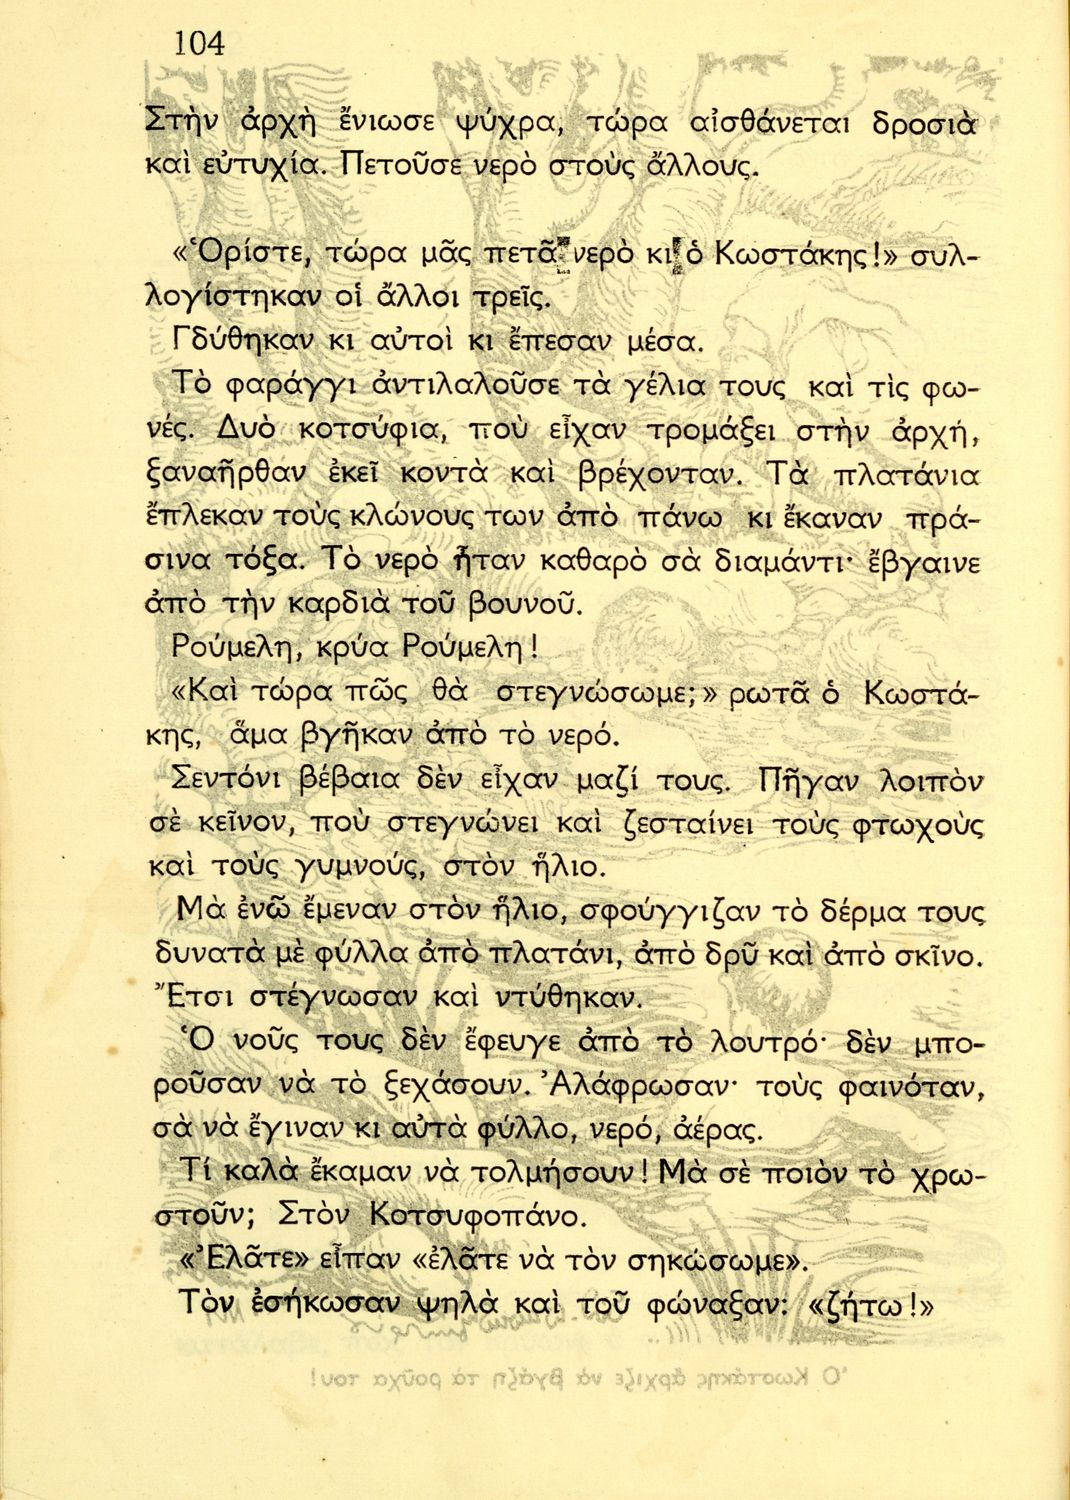 104
Στὴν ἀρχὴ ἔνιωσε ψύχρα, τώρα αἰσθάνεται δροσιὰ
καὶ εὐτυχία. Πετοῦσε νερὸ στοὺς ἄλλους.
«Ὁρίστε, τώρα μᾶς πετᾶ νερὸ κι ὁ Κωστάκης!» συλ-
λογίστηκαν οἱ ἄλλοι τρεῖς.
Γδύθηκαν κι αὐτοὶ κι ἔπεσαν μέσα.
Τὸ φαράγγι ἀντιλαλοῦσε τὰ γέλια τους καὶ τὶς φω-
νές. Δυὸ κοτσύφια, ποὺ εἶχαν τρομάξει στὴν ἀρχή,
ξαναῆρθαν ἐκεῖ κοντὰ καὶ βρέχονταν. Τὰ πλατάνια
ἔπλεκαν τοὺς κλώνους των ἀπὸ πάνω κι ἔκαναν πρά-
σινα τόξα. Τὸ νερὸ ἦταν καθαρὸ σὰ διαμάντι· ἔβγαινε
ἀπὸ τὴν καρδιὰ τοῦ βουνοῦ.
Ρούμελη, κρύα Ρούμελη!
«Καὶ τώρα πῶς θὰ στεγνώσωμε;» ρωτᾶ ὁ Κωστά-
κης, ἅμα βγῆκαν ἀπὸ τὸ νερό.
Σεντόνι βέβαια δὲν εἶχαν μαζί τους. Πῆγαν λοιπὸν
σὲ κεῖνον, ποὺ στεγνώνει καὶ ζεσταίνει τοὺς φτωχοὺς
καὶ τοὺς γυμνούς, στὸν ἥλιο.
Μὰ ἐνῶ ἔμεναν στὸν ἥλιο, σφούγγιζαν τὸ δέρμα τους
δυνατὰ μὲ φύλλα ἀπὸ πλατάνι, ἀπὸ δρῦ καὶ ἀπὸ σκῖνο.
Ἔτσι στέγνωσαν καὶ ντύθηκαν.
Ὁ νοῦς τους δὲν ἔφευγε ἀπὸ τὸ λουτρό· δὲν μπο-
ροῦσαν νὰ τὸ ξεχάσουν. Ἀλάφρωσαν· τοὺς φαινόταν,
σὰ νὰ ἔγιναν κι αὐτὰ φύλλο, νερό, ἀέρας.
Τί καλὰ ἔκαμαν νὰ τολμήσουν! Μὰ σὲ ποιὸν τὸ χρω-
στοῦν; Στὸν Κοτσυφοπάνο.
«Ἐλᾶτε» εἶπαν «ἐλᾶτε νὰ τὸν σηκώσωμε».
Τὸν ἐσήκωσαν ψηλὰ καὶ τοῦ φώναξαν: «ζήτω!»
Ὁ Κωστάκης ἄρχιζε νὰ βγάζη τὰ ροῦχα του!